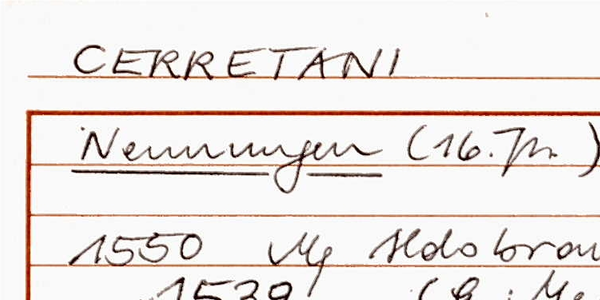 CERRETANI
Nennungen (16. Jh.)
1550 Mg Aldobran
1539